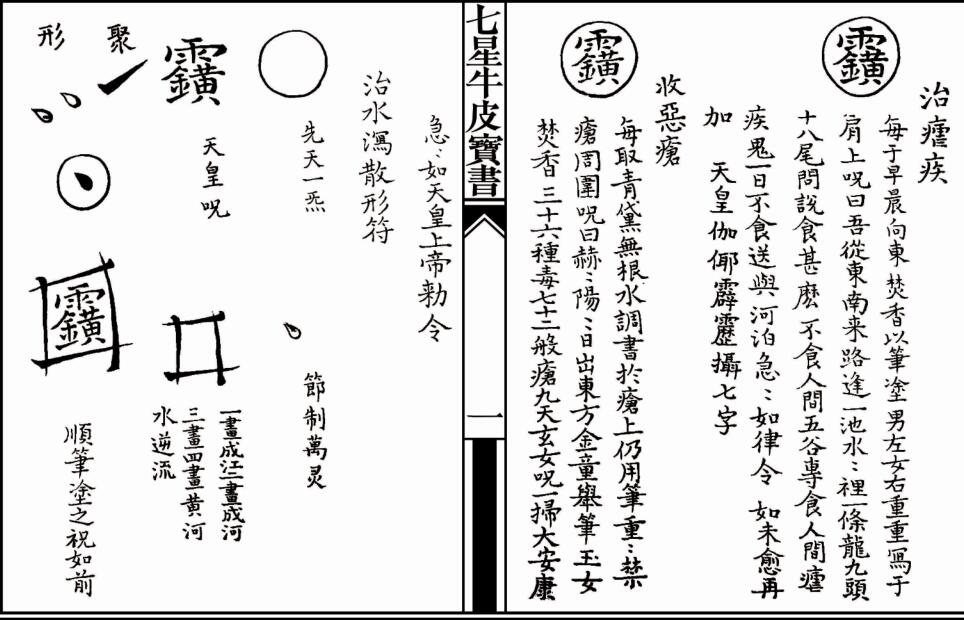 治瘧疾
每于早晨向東焚香以筆塗男左女右重重寫于
肩上呪曰吾從東南来路逢一池水〻裡一條龍九頭
十八尾問說食甚麽不食人間五谷專食人間瘧
疾鬼一日不食送與河泊急〻如律令 如未愈再
加 天皇伽倻霹靂攝七字
收惡瘡
每取青黛無根水調書於瘡上仍用筆重〻禁
瘡周圍呪曰赫〻陽〻日出東方金童舉筆玉女
焚香三十六種毒七十二般瘡九天玄女呪一掃大安康
七星牛皮寶書
一
急〻如天皇上帝勅令
治水瀉散形符
先天一炁
節制萬灵
天皇呪
一畫成江二畫成河
三畫四畫黄河
水逆流
聚形
順筆塗之祝如前